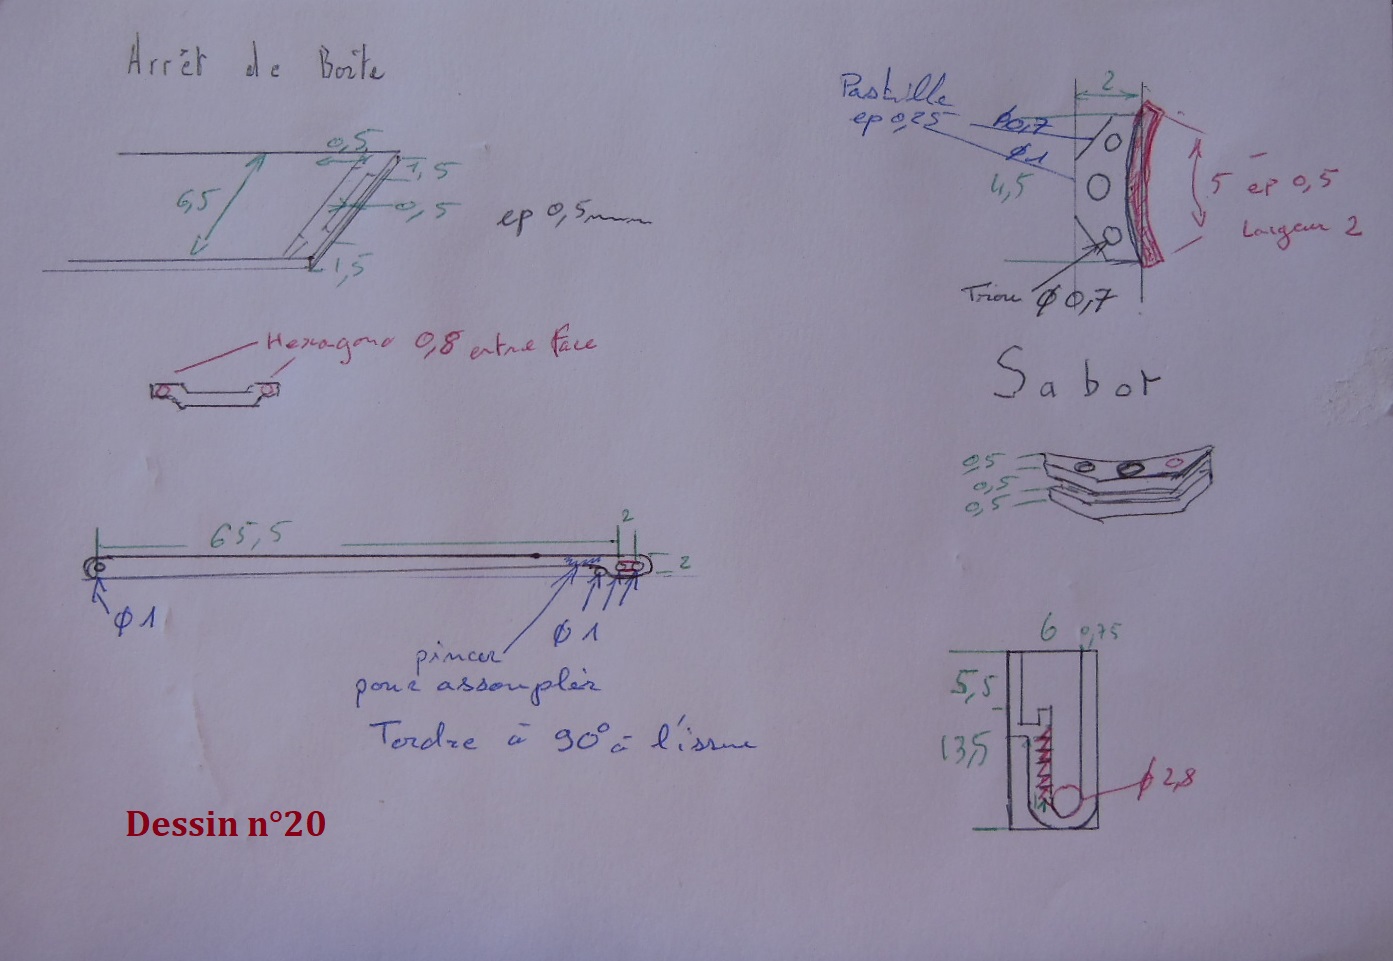 Arrêt de Boîte
0,5
1,5
6,5
0,5
ep 0,5mm
1,5
Hexagone 0,8 entre Face
65,5
2
2
ϕ 1
ϕ 1
pincer
pour assouplir
Tordre à 90° à l'issue
Dessin n°20
2
Pastille
ep 0,25
ϕ0,7
ϕ1
4,5
5 ep 0,5
Largeur 2
Trou ϕ 0,7
Sabot
0,5
0,5
0,5
6
0,75
5,5
13,5
ϕ 2,8